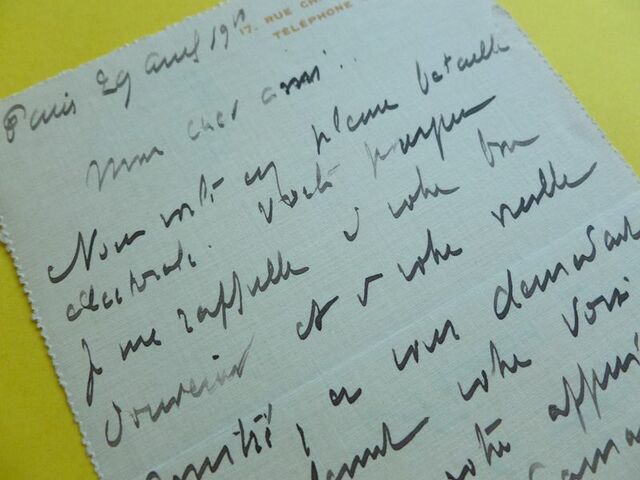 17, RUE
TÉLÉPHONE
Paris 29 avril 19
Mon cher ami :
Nous voilà en pleine bataille
électorale. Voilà pourquoi
je me rappelle à votre bon
souvenir et à votre vieille
amitié, en vous demandant
votre voix
votre appui